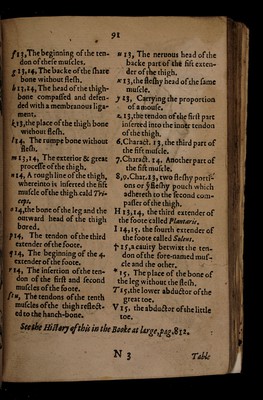 91
f 13, The beginning of the ten-
don of these muscles.
g 13,14, The backe of the share
bone without flesh.
h 13,14, The head of the thigh-
bone compassed and defen-
ded with a membranous liga-
ment.
i, 13, the place of the thigh bone
without flesh.
l 14. The rumpe bone without
flesh.
m 13,14, The exterior & great
processe of the thigh.
n 14, A rough line of the thigh,
whereinto is inserted the fift
muscle of the thigh cald Tri-
ceps.
o 14, the bone of the leg and the
outward head of the thigh
bored.
p 14, The tendon of the third
extander of the foote.
q 14, The beginning of the 4.
extander of the foote.
r 14, The insertion of the ten-
don of the first and second
muscles of the foote.
The tendons of the tenth
muscles of the thigh reflect-
ed to the hanch-bone.
u 13, The neruous head of the
backe part of the fift exten-
der of the thigh.
x 13, the fleshy head of the same
muscle.
y 13, Carrying the proportion
of a mouse.
z, 13, the tendon of the first part
inserted into the inner tendon
of the thigh.
6, Charact. 13, the third part of
the fift muscle.
7. Charact. 14. Another part of
the fift muscle.
8, 9. Char. 13, two fleshy porti-
ons or ye fleshy pouch which
adhereth to the second com-
passer of the thigh.
H 13,14, the third extender of
the foote called Plantaris.
I 14,15. the fourth extender of
the foote called Soleus.
† 15, a cauity betwixt the ten-
don of the fore-named mus-
cle and the other.
* 15, The place of the bone of
the leg without the flesh.
T 15, the lower abductor of the
great toe.
V 15. the abductor of the little
toe.
See the History of this in the Booke at large, pag. 832.
N 3
Table